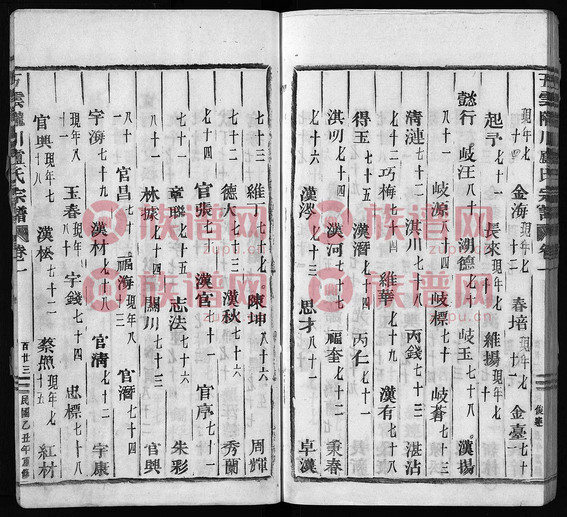 現年七十四 金海十三 春培十一 金臺七十
起予現年七十一 長來現年七十 維揚現年七十
懿行 岐汪八十 湖德七十 岐玉七十八 漢揚
七十二 岐源七十八 岐標七十六 岐蒼七十三
清漣七十二 淇川七十六 丙錢七十三 湛沾
七十二 巧梅七十二 維華七十九 漢有七十八
得玉七十五 漢潛七十四 丙仁
淇明七十四 漢河七十三 福奎七十二 秉春
七十六 漢涔七十三 思才八十一 卓漢
俊遷
七十三 維 七十七 陳坤八十六 周輝
七十二 德大七十三 漢秋七十六 秀蘭
七十四 官張七十一 漢官七十三 官序七十一
章聯七十五 志法七十六 朱彩
八十一 林琛七十四 關川七十三 官興
八十 官昌七十一 福海現年七十三 官潛七十四
字海七十四 漢材七十二 官清七十二 字康
現年八十 玉春現年八十 字錢七十四 忠標七十八
官興八十八 漢松七十二 蔡照十五 紅材
雲隴川盧氏宗譜 卷一 百廿三 民國乙丑年重修
族谱网
zupu.cn